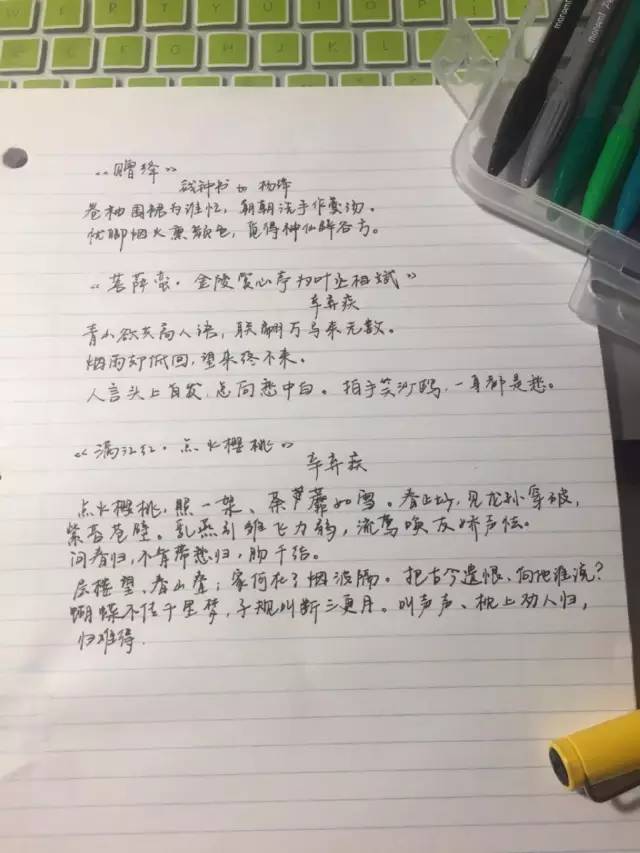 《赠绛》
钱钟书 to 杨绛
卷袖围裙为谁忙，朝朝洗手作羹汤。
忧卿烟火熏颜色，觅得神仙辟谷方。
《菩萨蛮·金陵赏心亭为叶丞相赋》
辛弃疾
青山欲共高人语，联翩万马来无数。
烟雨却低回，望来终不来。
人言头上白发，总向愁中白。拍手笑沙鸥，一身都是愁。
《满江红·点火樱桃》
辛弃疾
点火樱桃，照一架、荼蘼如雪。春正好，见龙孙穿破，
紫苔苍壁。乳燕引雏飞力弱，流莺唤友娇声怯。
问春归，不肯带愁归，肠千结。
层楼望，春山叠；家何在？烟波隔。把古今遗恨，向他谁说？
蝴蝶不传千里梦，子规叫断三更月。叫声声、枕上劝人归，
归难得.